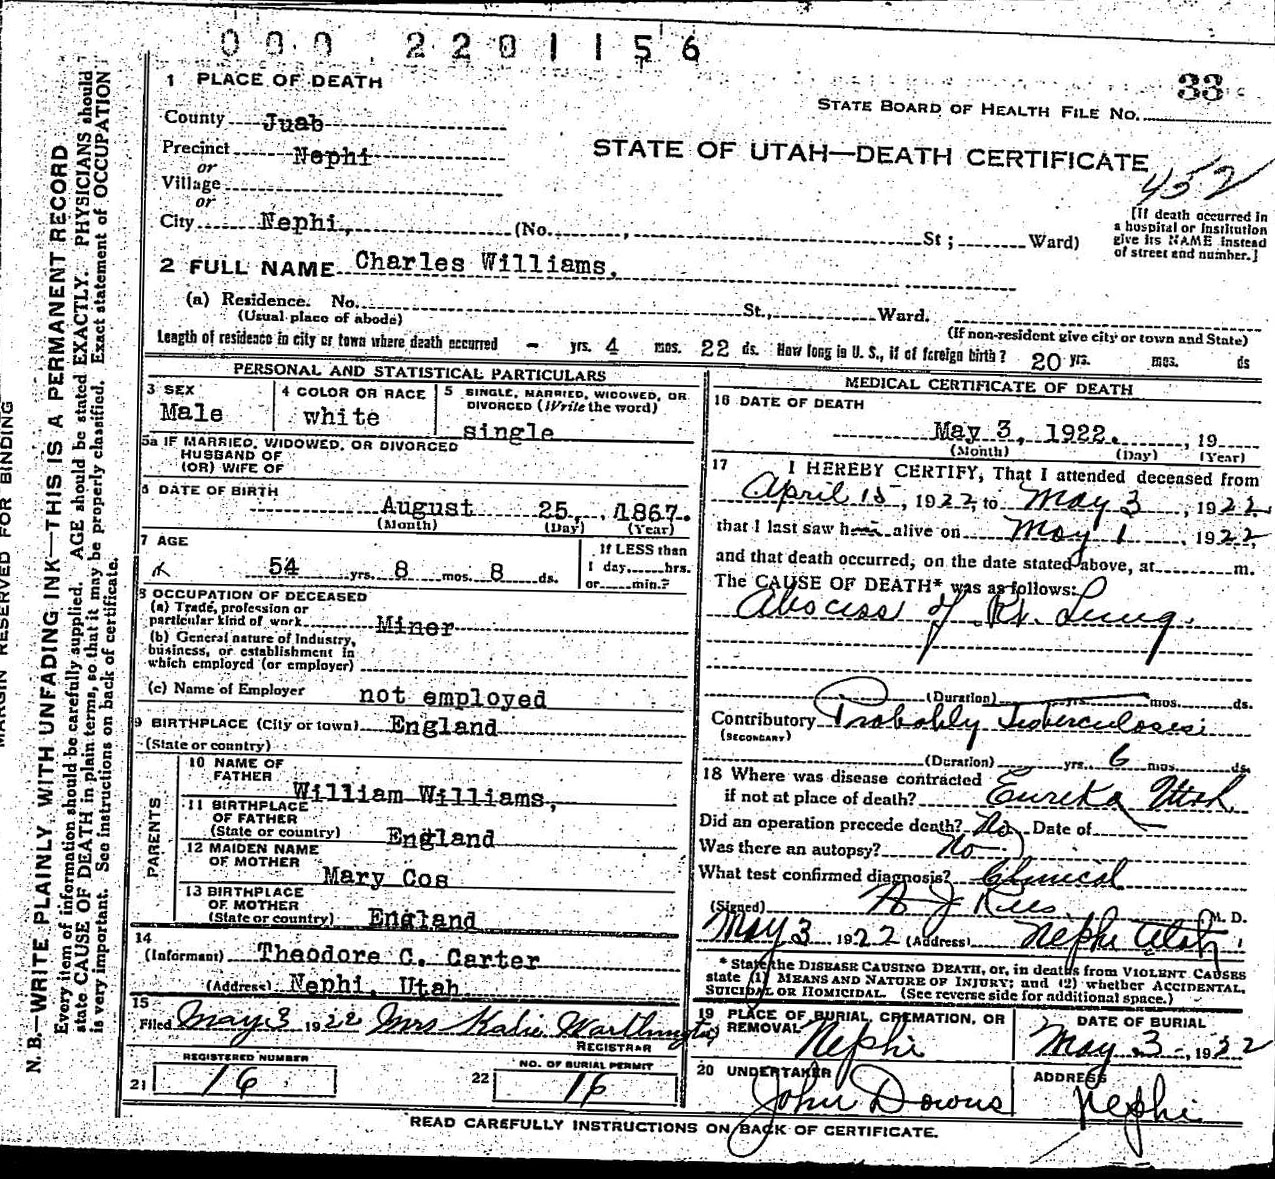 000 2201156
33
STATE BOARD OF HEALTH FILE NO.
1 PLACE OF DEATH
County Juab
Precinct Nephi
or
Village
or
City Nephi, (No. , St; Ward)
STATE OF UTAH—DEATH CERTIFICATE
452
[If death occurred in
a hospital or institution
give its NAME instead
of street and number.]
2 FULL NAME Charles Williams.
(a) Residence. No. St., Ward.
(Usual place of abode) (If non-resident give city or town and State)
Length of residence in city or town where death occurred - yrs. 4 mos. 22 ds. How long in U. S., if of foreign birth? 20 yrs. mos. ds
PERSONAL AND STATISTICAL PARTICULARS
3 SEX Male
4 COLOR OR RACE white
5 SINGLE, MARRIED, WIDOWED, OR
DIVORCED (Write the word)
single
5a IF MARRIED, WIDOWED, OR DIVORCED
HUSBAND OF
(OR) WIFE OF
6 DATE OF BIRTH
August 25, 1867.
(Month) (Day) (Year)
7 AGE
54 yrs. 8 mos. 8 ds.
If LESS than
1 day, hrs.
or min.?
8 OCCUPATION OF DECEASED
(a) Trade, profession or
particular kind of work Miner
(b) General nature of industry,
business, or establishment in
which employed (or employer)
(c) Name of Employer not employed
9 BIRTHPLACE (City or town) England
(State or country)
PARENTS
10 NAME OF
FATHER William Williams,
11 BIRTHPLACE
OF FATHER
(State or country) England
12 MAIDEN NAME
OF MOTHER Mary Cos
13 BIRTHPLACE
OF MOTHER
(State or country) England
14
(Informant) Theodore C. Carter
(Address) Nephi, Utah
15
Filed May 3 1922 Mrs Katie Worthington
REGISTRAR
REGISTERED NUMBER
21 16
NO. OF BURIAL PERMIT
22 16
MEDICAL CERTIFICATE OF DEATH
16 DATE OF DEATH
May 3, 1922. , 19
(Month) (Day) (Year)
17 I HEREBY CERTIFY, That I attended deceased from
April 15, 1922, to May 3, 1922
that I last saw him alive on May 1, 1922,
and that death occurred, on the date stated above, at m.
The CAUSE OF DEATH* was as follows:
Abscess of Rt. Lung.
(Duration) mos. ds.
Contributory Probably Tuberculosis
(SECONDARY)
(Duration) yrs. 6 mos. ds.
18 Where was disease contracted
if not at place of death? Eureka Utah
Did an operation precede death? No Date of
Was there an autopsy? No
What test confirmed diagnosis? Clinical
(Signed) M. D.
May 3 1922 (Address) Nephi Utah.
* State the DISEASE CAUSING DEATH, or, in deaths from VIOLENT CAUSES
state (1) MEANS AND NATURE OF INJURY; and (2) whether ACCIDENTAL,
SUICIDAL OR HOMICIDAL. (See reverse side for additional space.)
19 PLACE OF BURIAL, CREMATION, OR
REMOVAL Nephi
DATE OF BURIAL
May 3-, 1922
20 UNDERTAKER
John Downs
ADDRESS
Nephi
READ CAREFULLY INSTRUCTIONS ON BACK OF CERTIFICATE.
MARGIN RESERVED FOR BINDING
N. B.—WRITE PLAINLY WITH UNFADING INK—THIS IS A PERMANENT RECORD
Every item of information should be carefully supplied. AGE should be stated EXACTLY. PHYSICIANS should
state CAUSE OF DEATH in plain terms, so that it may be properly classified. Exact statement of OCCUPATION
is very important. See instructions on back of certificate.